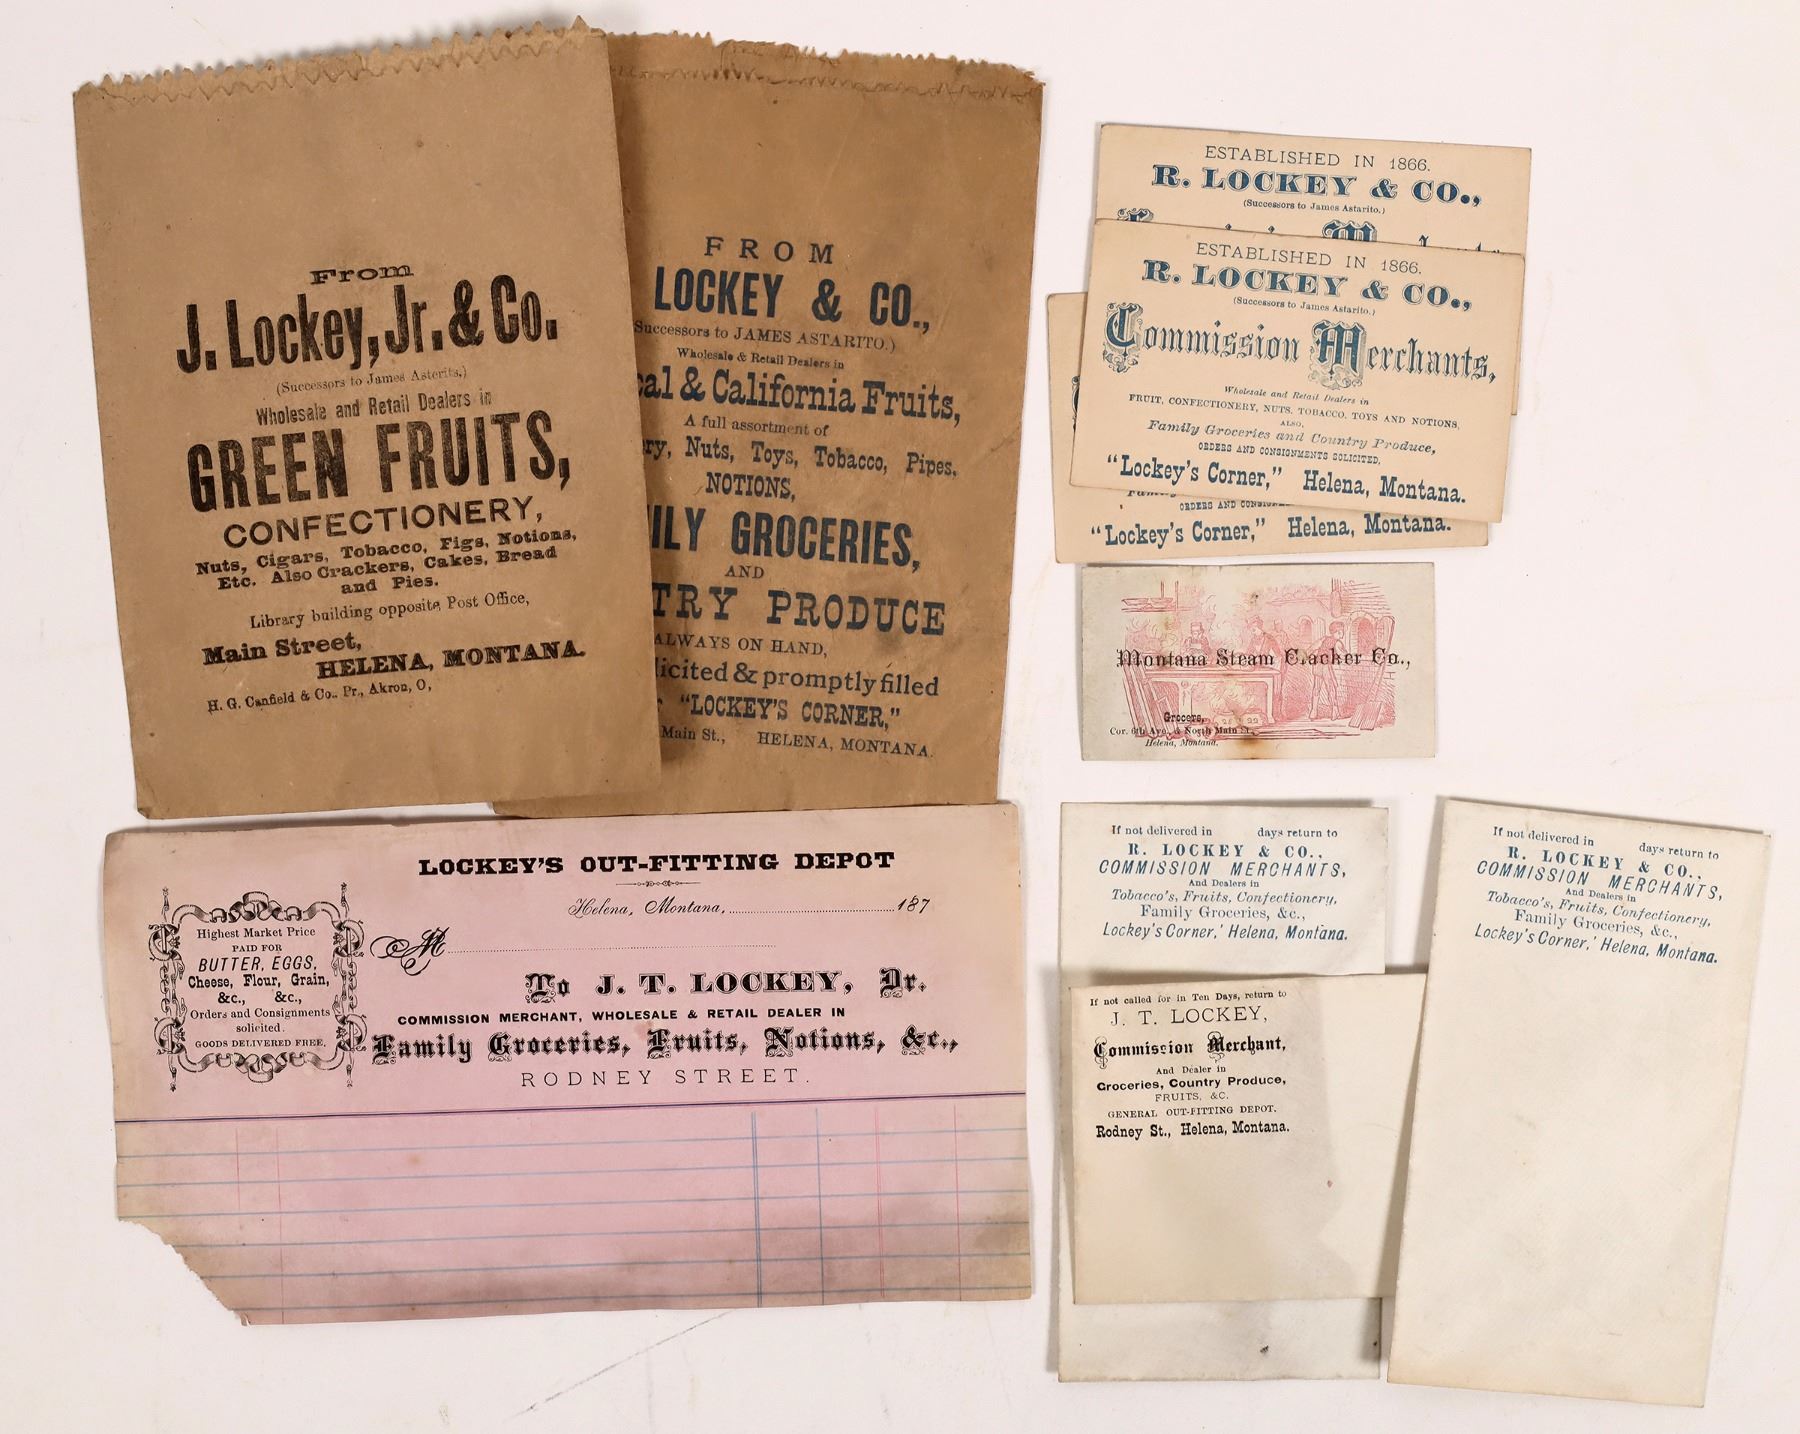 From
J. Lockey, Jr. & Co.
(Successors to James Asterits,)
Wholesale and Retail Dealers in
GREEN FRUITS,
CONFECTIONERY,
Nuts, Cigars, Tobacco, Figs, Notions,
Etc. Also Crackers, Cakes, Bread
and Pies.
Library building opposite Post Office,
Main Street,
HELENA, MONTANA.
H. G. Canfield & Co., Pr., Akron, O,
FROM
LOCKEY & CO.,
Successors to JAMES ASTARITO.)
Wholesale & Retail Dealers in
& California Fruits,
A full assortment of
Nuts, Toys, Tobacco, Pipes,
NOTIONS,
GROCERIES,
AND
PRODUCE
ALWAYS ON HAND,
& promptly filled
"LOCKEY'S CORNER,"
Main St., HELENA, MONTANA.
ESTABLISHED IN 1866.
R. LOCKEY & CO.,
(Successors to James Astarito.)
ESTABLISHED IN 1866.
R. LOCKEY & CO.,
(Successors to James Astarito.)
Commission Merchants,
Wholesale and Retail Dealers in
FRUIT, CONFECTIONERY, NUTS, TOBACCO, TOYS AND NOTIONS,
ALSO,
Family Groceries and Country Produce,
ORDERS AND CONSIGNMENTS SOLICITED,
"Lockey's Corner," Helena, Montana.
ORDERS AND
"Lockey's Corner," Helena, Montana.
Montana Steam Cracker Co.,
Grocers,
Cor. 6th Ave. & North Main St.
Helena, Montana.
LOCKEY'S OUT-FITTING DEPOT
Helena, Montana, 187
M
To J. T. LOCKEY, Dr.
COMMISSION MERCHANT, WHOLESALE & RETAIL DEALER IN
Family Groceries, Fruits, Notions, &c.,
RODNEY STREET.
Highest Market Price
PAID FOR
BUTTER, EGGS,
Cheese, Flour, Grain,
&c., &c.,
Orders and Consignments
solicited.
GOODS DELIVERED FREE.
If not delivered in days return to
R. LOCKEY & CO.,
COMMISSION MERCHANTS,
And Dealers in
Tobacco's, Fruits, Confectionery,
Family Groceries, &c.,
Lockey's Corner,' Helena, Montana.
If not called for in Ten Days, return to
J. T. LOCKEY,
Commission Merchant,
And Dealer in
Groceries, Country Produce,
FRUITS, &C.
GENERAL OUT-FITTING DEPOT,
Rodney St., Helena, Montana.
If not delivered in days return to
R. LOCKEY & CO.,
COMMISSION MERCHANTS,
And Dealers in
Tobacco's, Fruits, Confectionery,
Family Groceries, &c.,
Lockey's Corner,' Helena, Montana.